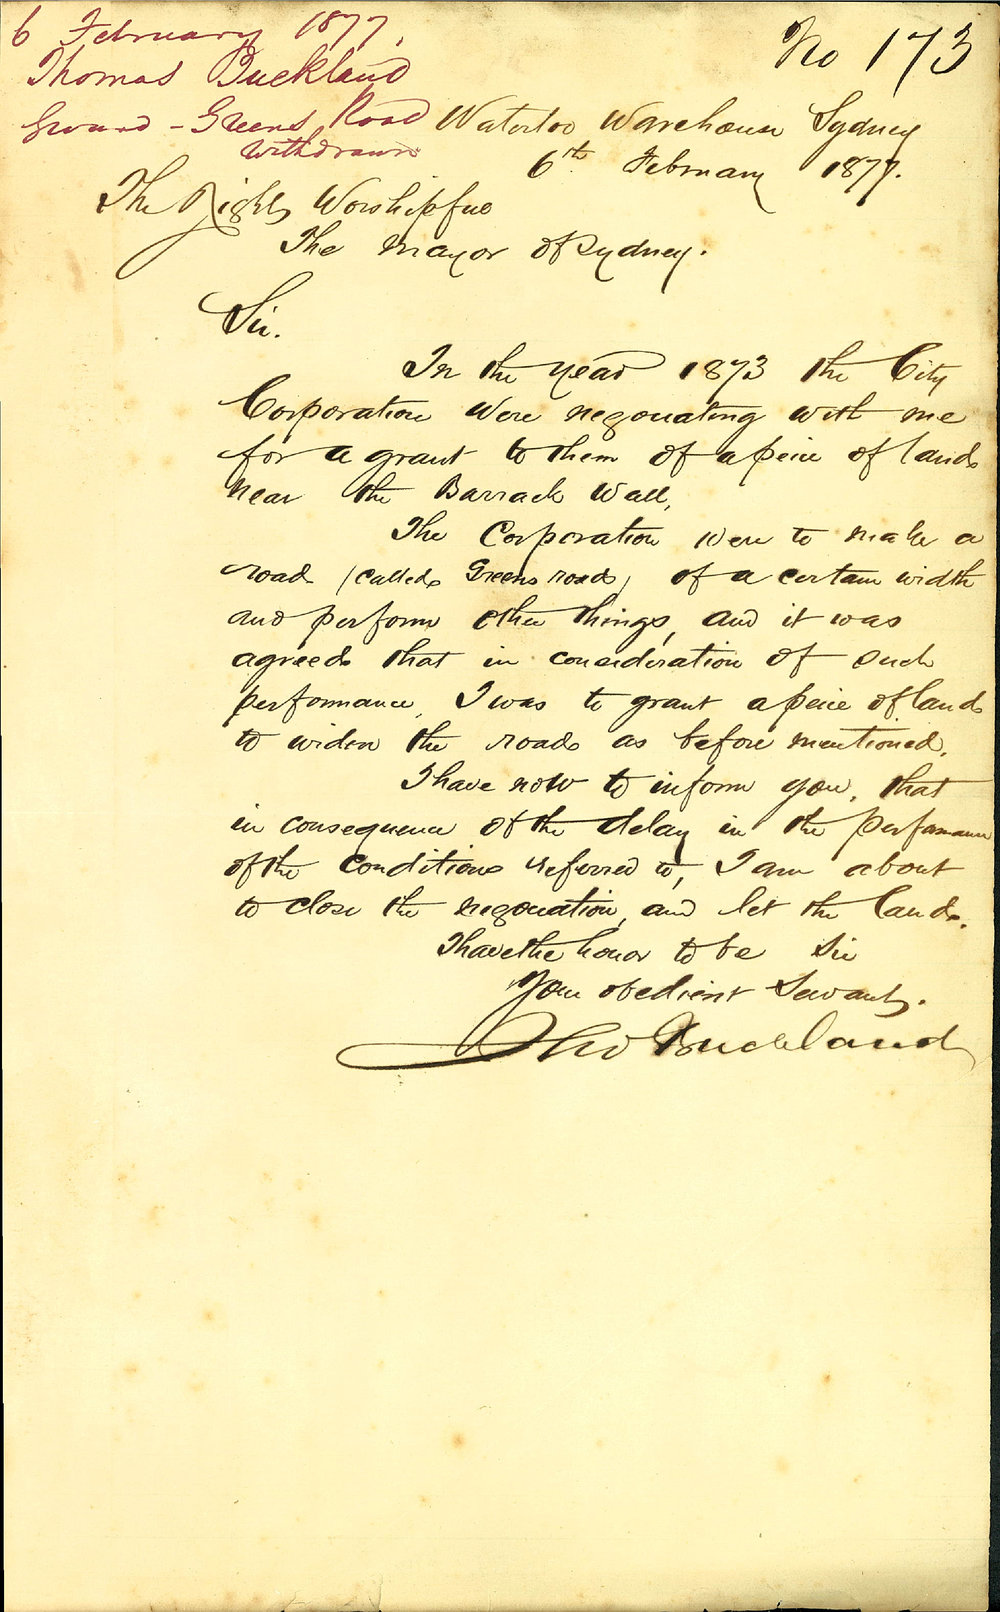 6 February 1877,
Thomas Buckland
Ground - Greens Road
withdrawn
No 173
Waterloo Warehouse Sydney
6th February 1877.
The Right Worshipful
The Mayor of Sydney.
Sir.
In the year 1873 the City
Corporation were negociating with me
for a grant to them of a peice of land
near the Barrack Wall,
The Corporation were to make a
road (called Greens road) of a certain width
and perform other things, and it was
agreed that in consideration of such
performance, I was to grant a peice of land
to widen the road as before mentioned.
I have now to inform you, that
in consequence of the delay in the performance
of the conditions referred to, I am about
to close the negociation, and let the land.
I have the honor to be Sir
Your obedient Servant.
Tho Buckland